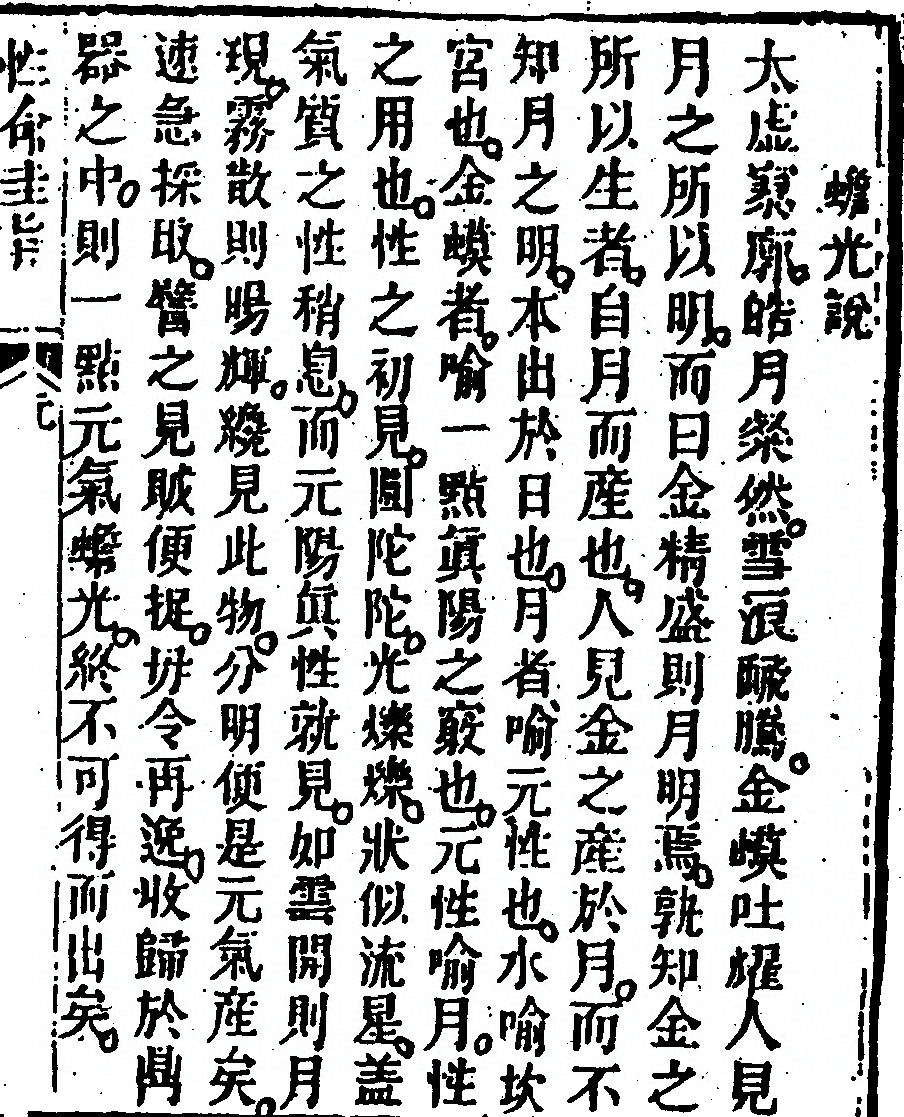 蟾光說
太虛寥廓。皓月粲然。雪浪飜騰。金蟆吐耀人見
月之所以明。而曰金精盛則月明焉。孰知金之
所以生者。自月而產也。人見金之產於月。而不
知月之明。本出於日也。月者喻元性也。水喻坎
宮也。金蟆者。喻一點眞陽之竅也。元性喻月。性
之用也。性之初見。圓陀陀。光爍爍。狀似流星。盖
氣質之性稍息。而元陽眞性就見。如雲開則月
現。霧散則陽輝。纔見此物。分明便是元氣產矣。
速急採取。譬之見賊便捉。毋令再逸。收歸於鼎
器之中。則一點元氣蟾光。終不可得而出矣。
性命圭旨